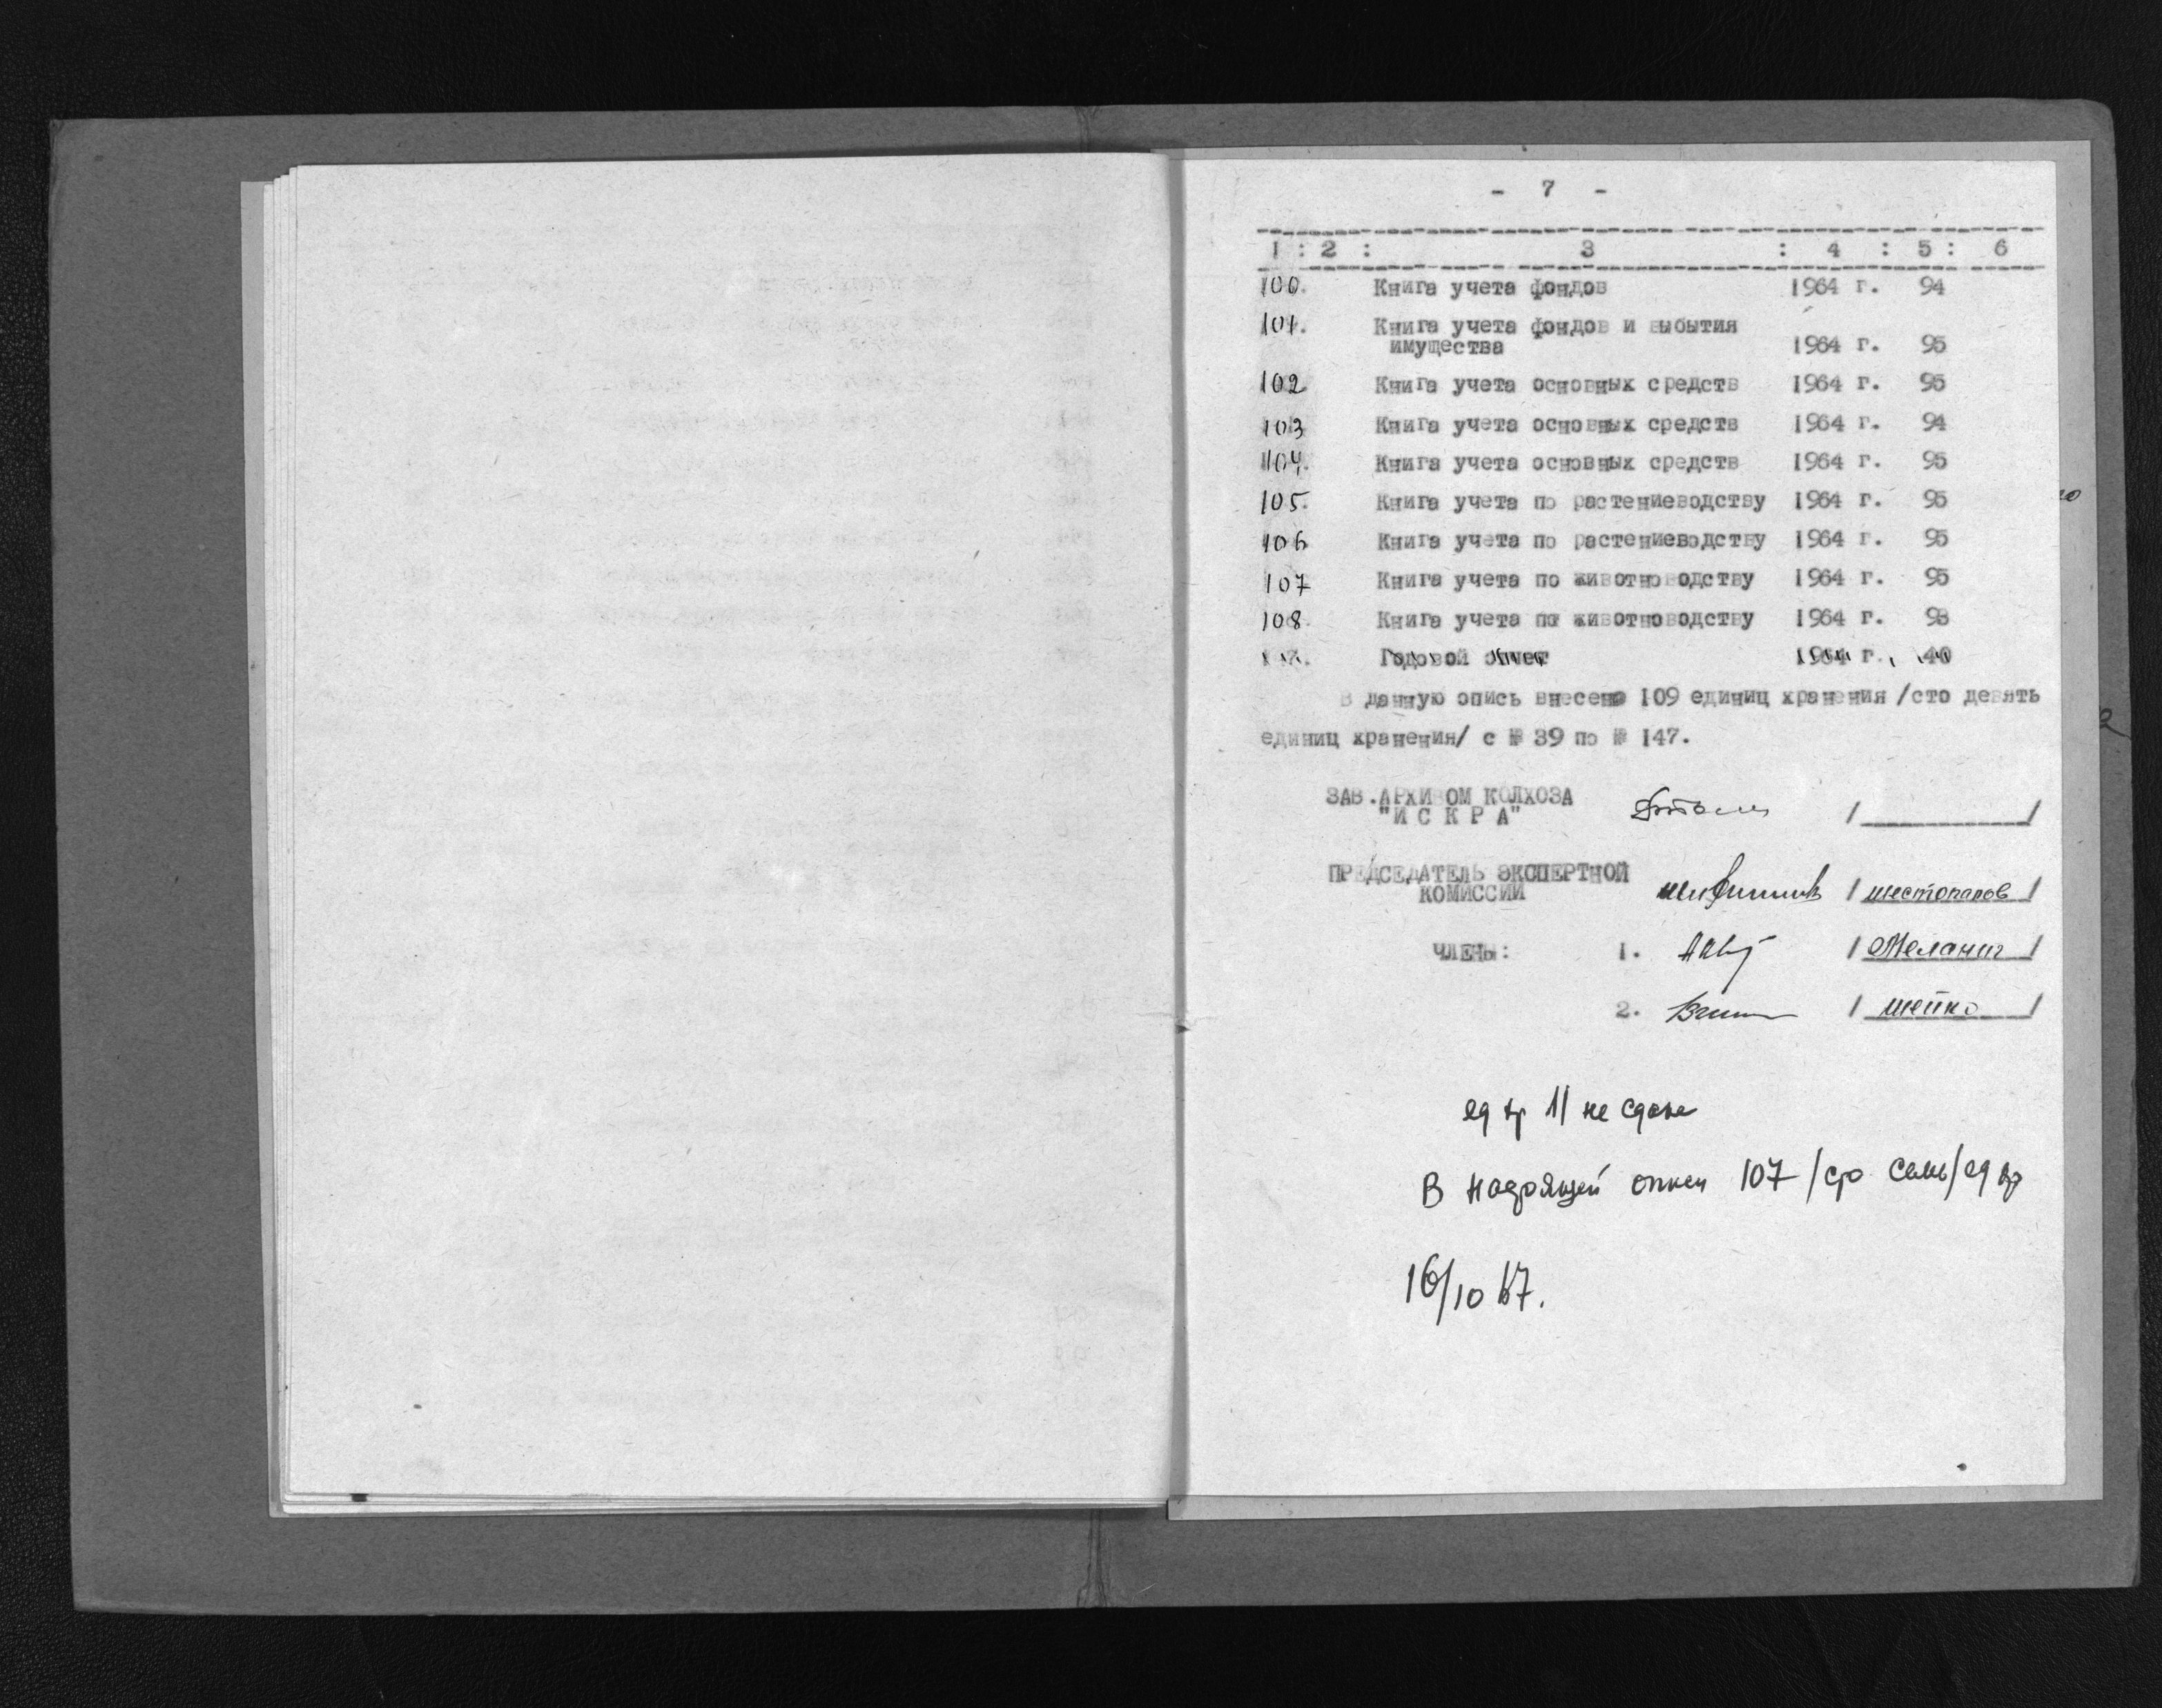 - 7 -
1 : 2 : 3 : 4 : 5 : 6
100. Книга учета фондов 1964 г. 94
101. Книга учета фондов и выбытия
имущества 1964 г. 95
102 Книга учета основных средств 1964 г. 95
103 Книга учета основных средств 1964 г. 94
104. Книга учета основных средств 1964 г. 95
105. Книга учета по растениеводству 1964 г. 95
106 Книга учета по растениеводству 1964 г. 95
107 Книга учета по животноводству 1964 г. 95
108. Книга учета по животноводству 1964 г. 93
Годовой отчет 1964 г. 40
В данную опись внесено 109 единиц хранения /сто девять
единиц хранения/ с № 39 по № 147.
ЗАВ.АРХИВОМ КОЛХОЗА
"И С К Р А" / /
ПРЕДСЕДАТЕЛЬ ЭКСПЕРТНОЙ
КОМИССИИ / шестопалов /
ЧЛЕНЫ: 1. / Меланич /
2. / шейко /
ед хр 11 не сдана
В настоящей описи 107 /сто семь/ ед хр
16/10 67.